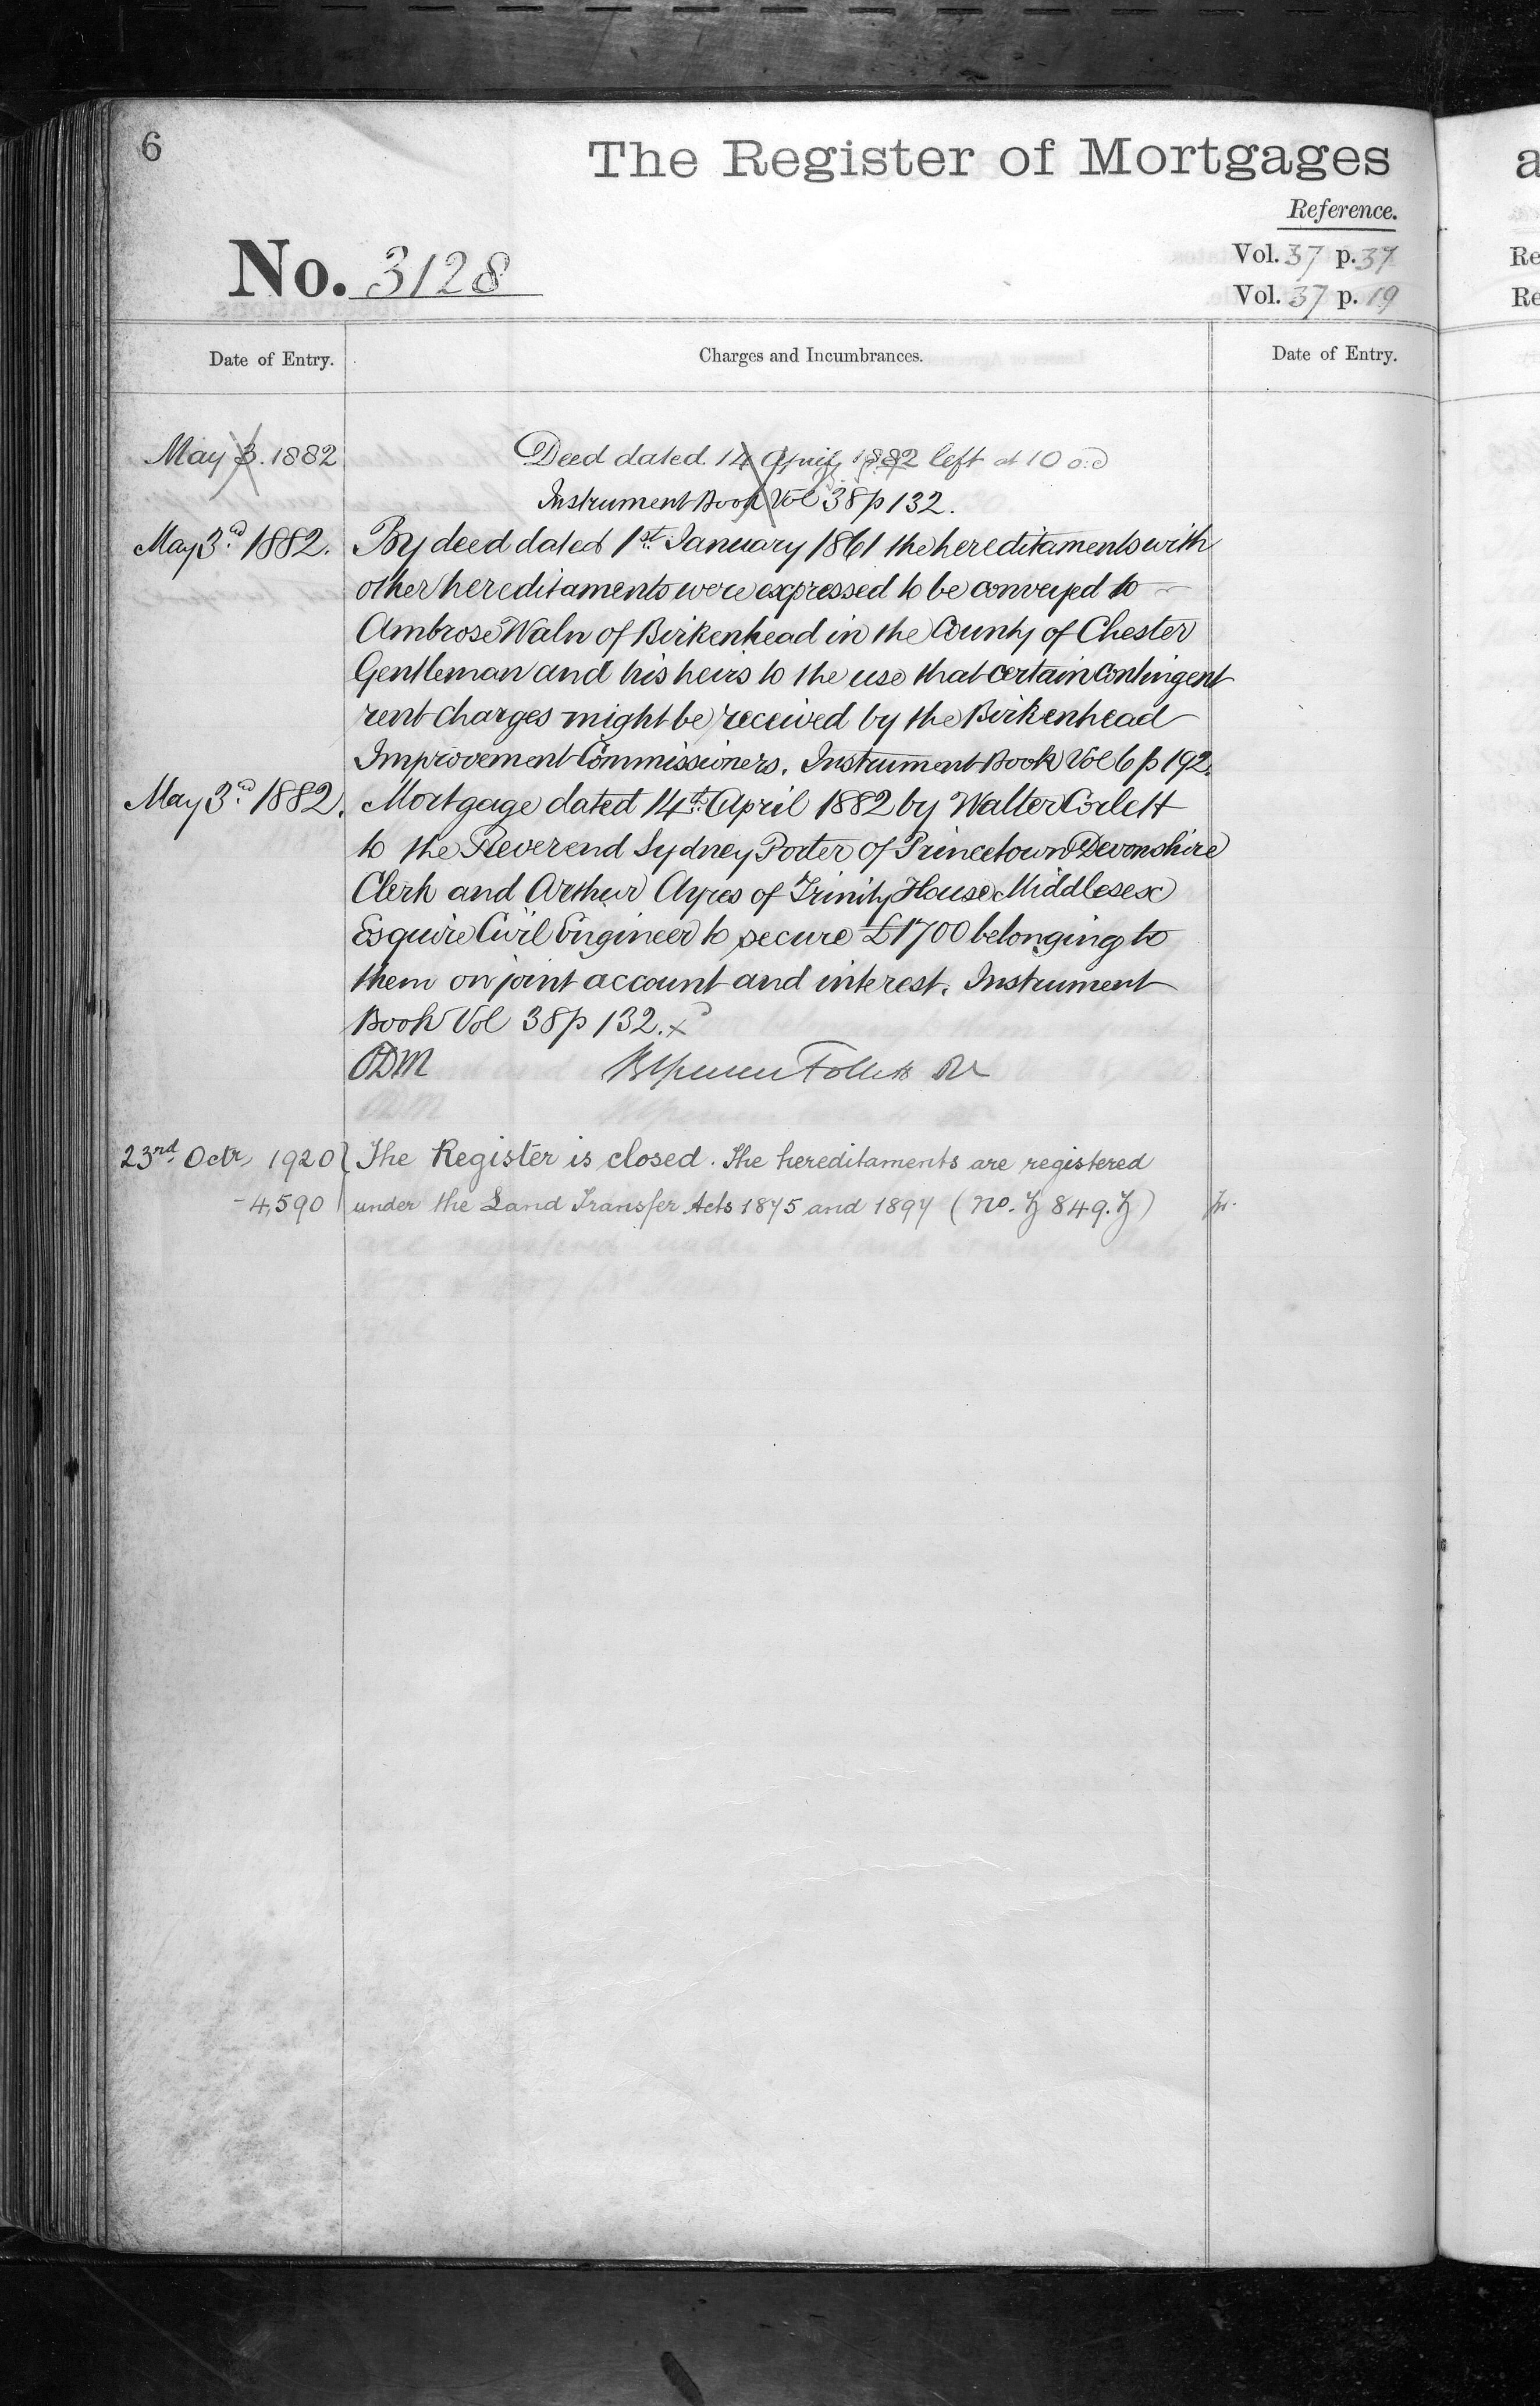 6
The Register of Mortgages
Reference.
No. 3128
Vol. 37 p. 37
Vol. 37 p. 19
Date of Entry.
Charges and Incumbrances.
Date of Entry.
May 3. 1882
Deed dated 14 April 1882 left at 10
Instrument Book Vol 38 p 132.
May 3rd 1882.
By deed dated 1st January 1861 the hereditaments with
other hereditaments were expressed to be conveyed to
Ambrose Waln of Birkenhead in the County of Chester
Gentleman and his heirs to the use that certain contingent
rent charges might be received by the Birkenhead
Improvement Commissioners. Instrument Book Vol 6 p 192.
May 3rd 1882.
Mortgage dated 14th April 1882 by Walter Corlett
to the Reverend Sydney Porter of Princetown Devonshire
Clerk and Arthur Ayres of Trinity House Middlesex
Esquire Civil Engineer to secure £1700 belonging to
them on joint account and interest. Instrument
Book Vol 38 p 132.
ODM
Follett
23rd Octr, 1920
The Register is closed. The hereditaments are registered
-4,590
under the Land Transfer Acts 1875 and 1897 (No. Z 849. Z)
a
Re
Re